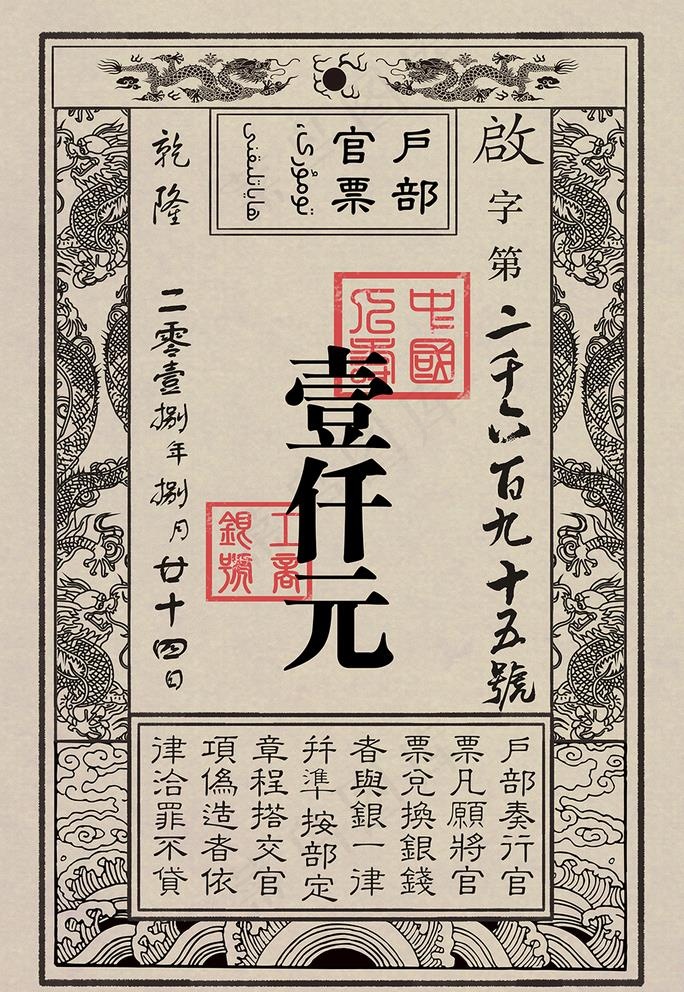 啟字第二千六百九十五號
戶部
官票
中國
工商
銀號
壹仟元
乾隆
二零壹捌年捌月廿十四日
戶部奏行官
票凡願將官
票兌換銀錢
者與銀一律
幷準按部定
章程搭交官
項僞造者依
律治罪不貸